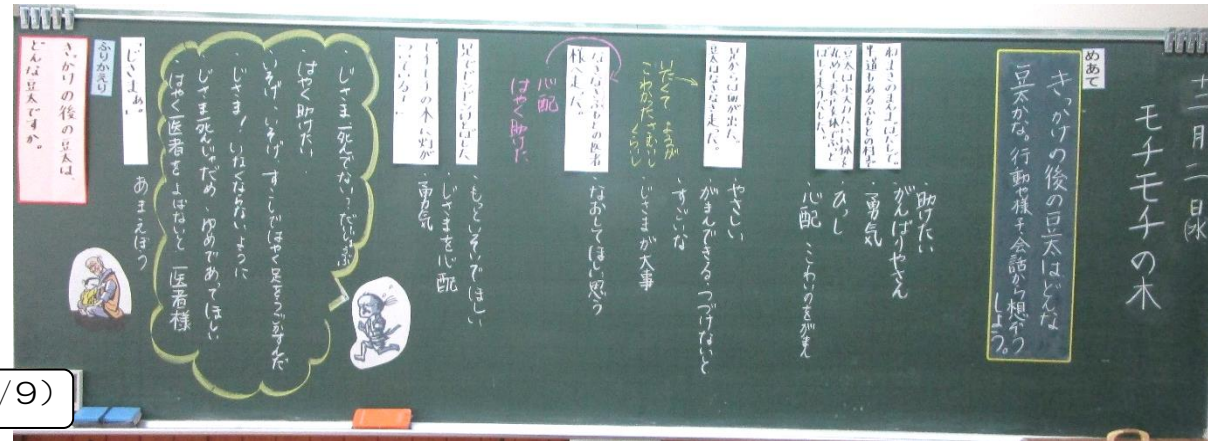 十二月二日㈬
モチモチの木
めあて
きっかけの後の豆太はどんな
豆太かな。行動や様子、会話から想ぞう
しよう。
・助けたい
・がんばりやさん
・勇気
・ひっし
・心配 こわいのをがまん
豆太はなきなき走った。
いたくて
こわかった
さむいし
くらいし
・やさしい
・がまんできる・つづけないと
・すごいな
・じさまが大事
なきなきふもとの医者
様へ走った。
心配
はやく助けたい
・なおしてほしい思う
・もっといそいでほしい
・じさまを心配
・勇気
モチモチの木に灯が
ついている!
・じさま死んでない?だいじょうぶ
・はやく助けたい
・いそげ、いそげ、すこしではやく足をうごかすんだ
・じさま!いなくならないように
・じさま死んじゃだめ ゆめであってほしい
・はやく医者をよばないと 医者様
「じさまぁ。」
あまえぼう
ふりかえり
きっかけの後の豆太は、
どんな豆太ですか。
/9)